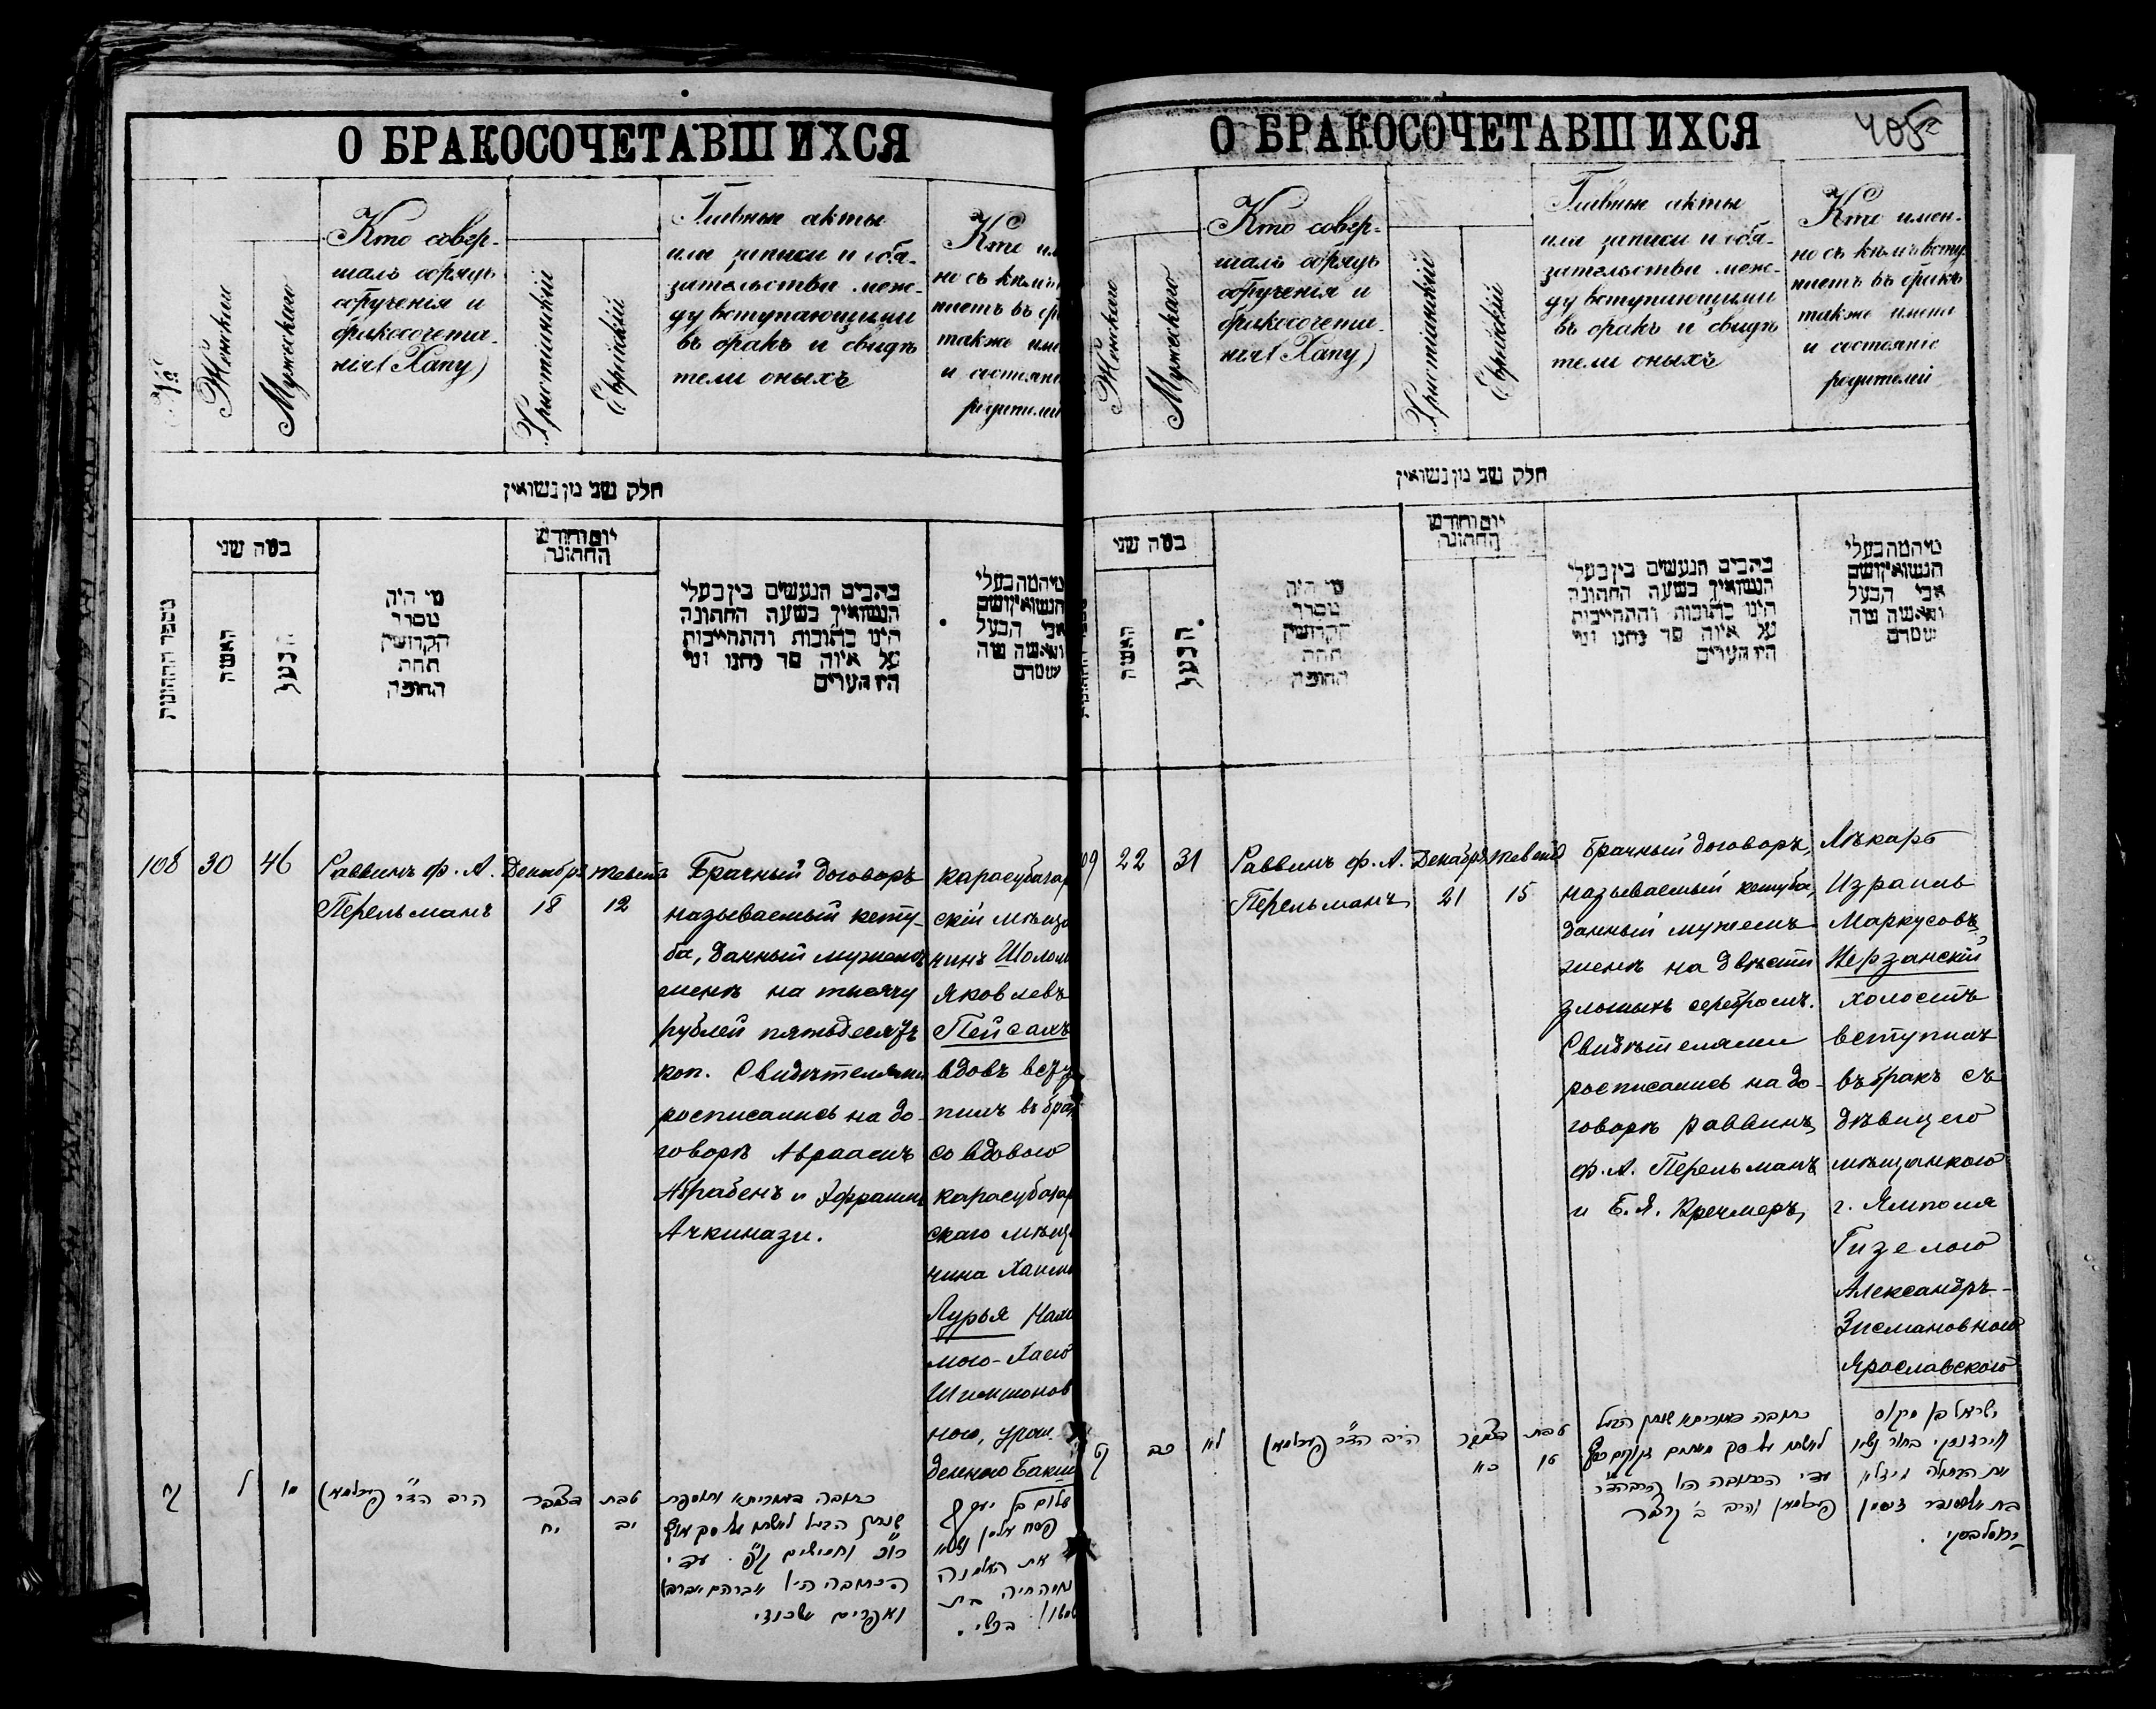 О БРАКОСОЧЕТАВШИХСЯ
Женскии
Мужескаго
Кто совер-
шалъ обрядъ
обрученія и
бракосочета-
нія (Хапу)
Христіанскій
Еврейскій
Главные акты
или записи и обя-
зательства меж-
ду вступающими
въ бракъ и свидѣ
тели оныхъ
Кто
но съ
въ
также
и
родители
חלק שני מן נשואין
מספר החתונות
כמה שני
האשה
הבעל
מי היה
מסדר
הקדושין
תחת
החופה
יום וחודש
החתונה
כהבים הנעשים בין בעלי
הנשואין בשעה החתונה
היגו כתובות והתחייבות
על איזה סך נתנו ומי
היו העדים
מיהמה בעלי
הנשואין ושם
אבי הבעל
והאשה
108 30 46
Раввинъ Ф. А.
Перельманъ
Декабря
18
Тевета
12
Брачный договоръ
называемый кету-
ба, данный мужемъ
женѣ на тысячу
рублей пятьдесятъ
коп. Свидѣтелями
росписались на до-
говорѣ Авраамъ
Абрабенъ и Эфраимъ
Ачкинази.
карасубазар
скій мѣща
нинъ Шолом
Яковлевъ
Пейсахъ
вдовъ всту
пилъ въ бра
со вдовою
карасубазар
скаго мѣщ
нина Хаима
Лурья Нахо
мою-Хаею
Шимшонов
ною, урож.
денною Бакши
קח
ל
מו
הרב הד״ר פערלמאן
דצמבר
יח
טבת
יב
כתובה
שנתן הבעל לאשתו על סך אלף
וחמישים
עדי
הכתובה היו אברהם
ואפרים אשכנזי
שלום בן יעקב
פסח אלמן נשא
את האלמנה
נחמה חיה בת
שמשון בקשי.
О БРАКОСОЧЕТАВШИХСЯ
405
Женскаго
Мужескаго
Кто совер-
шалъ обрядъ
обрученія и
бракосочета-
нія (Хапу)
Христіанскій
Еврейскій
Главные акты
или записи и обя-
зательства меж-
ду вступающими
въ бракъ и свидѣ
тели оныхъ
Кто имен-
но съ кѣмъ всту
паетъ въ бракъ
также имена
и состояніе
родителей
חלק שני מן נשואין
כמה שני
האשה
הבעל
מי היה
מסדר
הקדושין
תחת
החופה
יום וחודש
החתונה
כהבים הנעשים בין בעלי
הנשואין בשעה החתונה
היגו כתובות והתחייבות
על איזה סך נתנו ומי
היו העדים
מיהמה בעלי
הנשואין ושם
אבי הבעל
והאשה
09 22 31
Раввинъ Ф. А.
Перельманъ
Декабря
21
Тевета
15
Брачный договоръ,
называемый кетуба,
данный мужемъ
женѣ на двѣсти
злотыхъ серебромъ.
Свидѣтелями
росписались на до-
говорѣ раввинъ
Ф. А. Перельманъ
и Б. Я. Кречмеръ
Лѣкарь
Израиль
Маркусовъ
Нерзанскій
холостъ
вступилъ
въ бракъ съ
дѣвицею
мѣщанкою
г. Ямполя
Гизелою
Александръ-
Зисмановною
Ярославскою
קט
כב
לא
הרב הד״ר פערלמאן
דצמבר
כא
טבת
טו
כתובה דאורייתא שנתן הבעל
לאשתו על סך מאתים זקוקים כסף
עדי הכתובה היו הרב הד״ר
פערלמאן והרב ב׳ קרצמר
ישראל בן מרקוס
בחור נשא
את הבתולה גיזלא
בת אלכסנדר זיסמן
יארוסלבסקי.